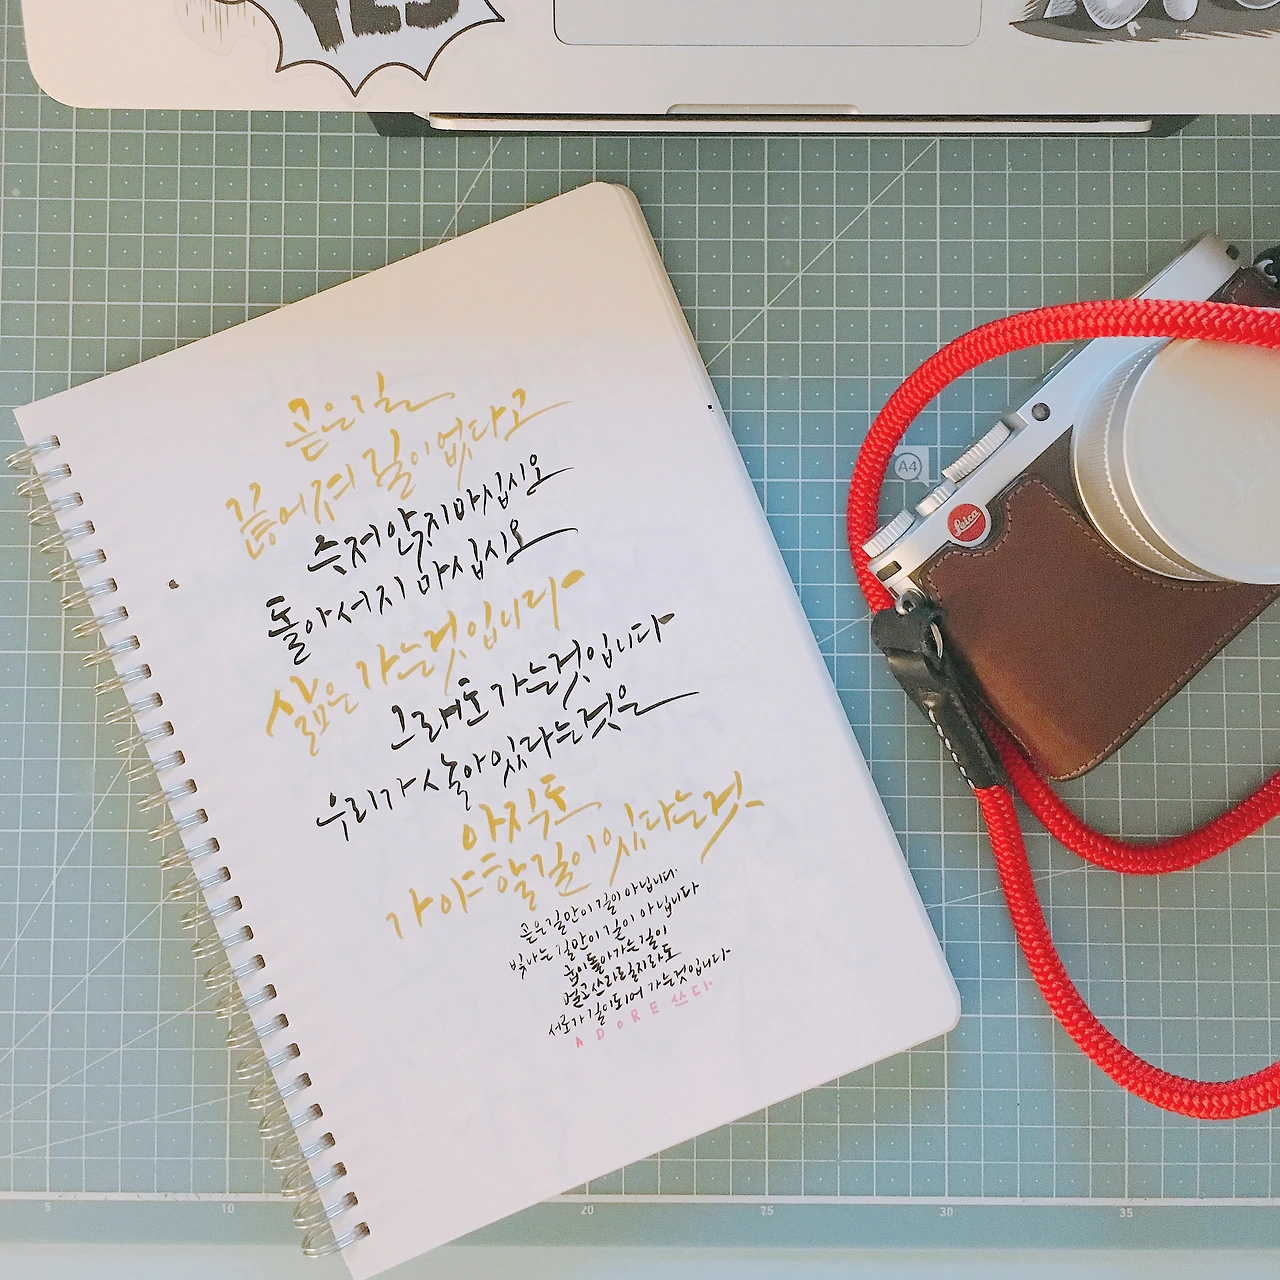 YES
곧은 길
끊어져 길이 없다고
주저앉지 마십시오
돌아서지 마십시오
삶은 가는 것입니다
그래도 가는 것입니다
우리가 살아 있다는 것은
아직도
가야 할 길이 있다는 것
곧은 길만이 길이 아닙니다
빛나는 길만이 길이 아닙니다
굽이 돌아가는 길이
멀고 쓰라릴지라도
서로가 길이 되어 가는 것입니다
ADORE 쓰다.
A4
Leica
5 10 20 25 30 35